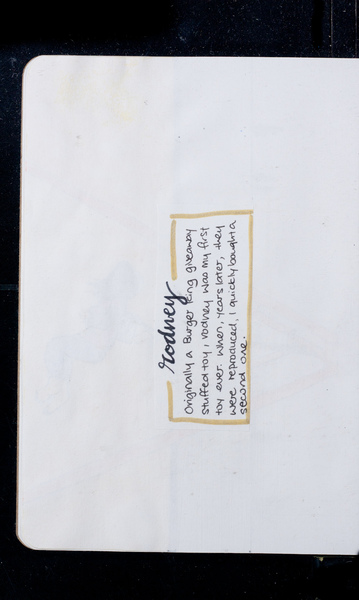 rodney
Originally a Burger King giveaway
stuffed toy, rodney was my first
toy ever. When, years later, they
were reproduced, I quickly bought a
second one.